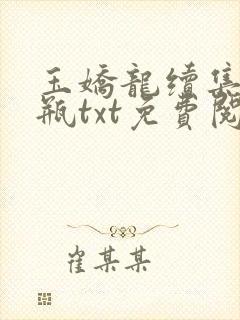 玉嬌龍續集
瓶txt免費閱
崔某某